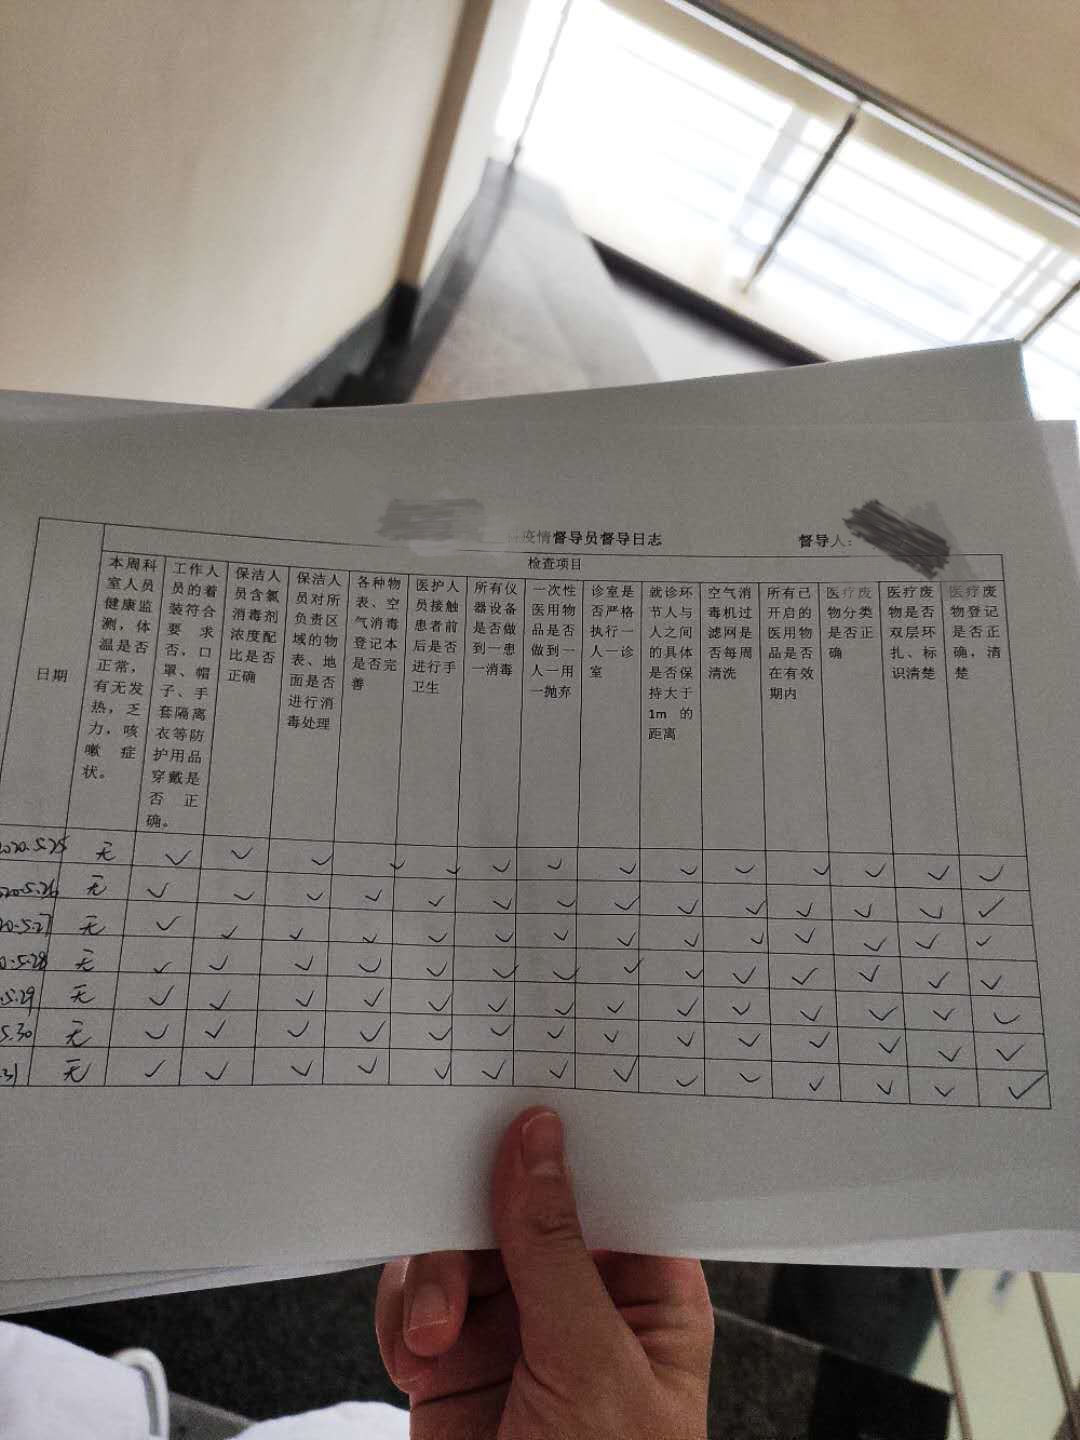 疫情督导员督导日志
督导人:
日期
检查项目
本周科
室人员
健康监
测,体
温是否
正常,
有无发
热,乏
力,咳
嗽症
状。
工作人
员的着
装符合
要求
否,口
罩、帽
子、手
套隔离
衣等防
护用品
穿戴是
否正
确。
保洁人
员含氯
消毒剂
浓度配
比是否
正确
保洁人
员对所
负责区
域的物
表、地
面是否
进行消
毒处理
各种物
表、空
气消毒
登记本
是否完
善
医护人
员接触
患者前
后是否
进行手
卫生
所有仪
器设备
是否做
到一患
一消毒
一次性
医用物
品是否
做到一
人一用
一抛弃
诊室是
否严格
执行一
人一诊
室
就诊环
节人与
人之间
的具体
是否保
持大于
1m的
距离
空气消
毒机过
滤网是
否每周
清洗
所有已
开启的
医用物
品是否
在有效
期内
医疗废
物分类
是否正
确
医疗废
物是否
双层环
扎、标
识清楚
医疗废
物登记
是否正
确,清
楚
2020.5.25 无 ✓ ✓ ✓ ✓ ✓ ✓ ✓ ✓ ✓ ✓ ✓ ✓ ✓ ✓
020.5.26 无 ✓ ✓ ✓ ✓ ✓ ✓ ✓ ✓ ✓ ✓ ✓ ✓ ✓ ✓
20.5.27 无 ✓ ✓ ✓ ✓ ✓ ✓ ✓ ✓ ✓ ✓ ✓ ✓ ✓ ✓
0.5.28 无 ✓ ✓ ✓ ✓ ✓ ✓ ✓ ✓ ✓ ✓ ✓ ✓ ✓ ✓
.5.29 无 ✓ ✓ ✓ ✓ ✓ ✓ ✓ ✓ ✓ ✓ ✓ ✓ ✓ ✓
5.30 无 ✓ ✓ ✓ ✓ ✓ ✓ ✓ ✓ ✓ ✓ ✓ ✓ ✓ ✓
.31 无 ✓ ✓ ✓ ✓ ✓ ✓ ✓ ✓ ✓ ✓ ✓ ✓ ✓ ✓